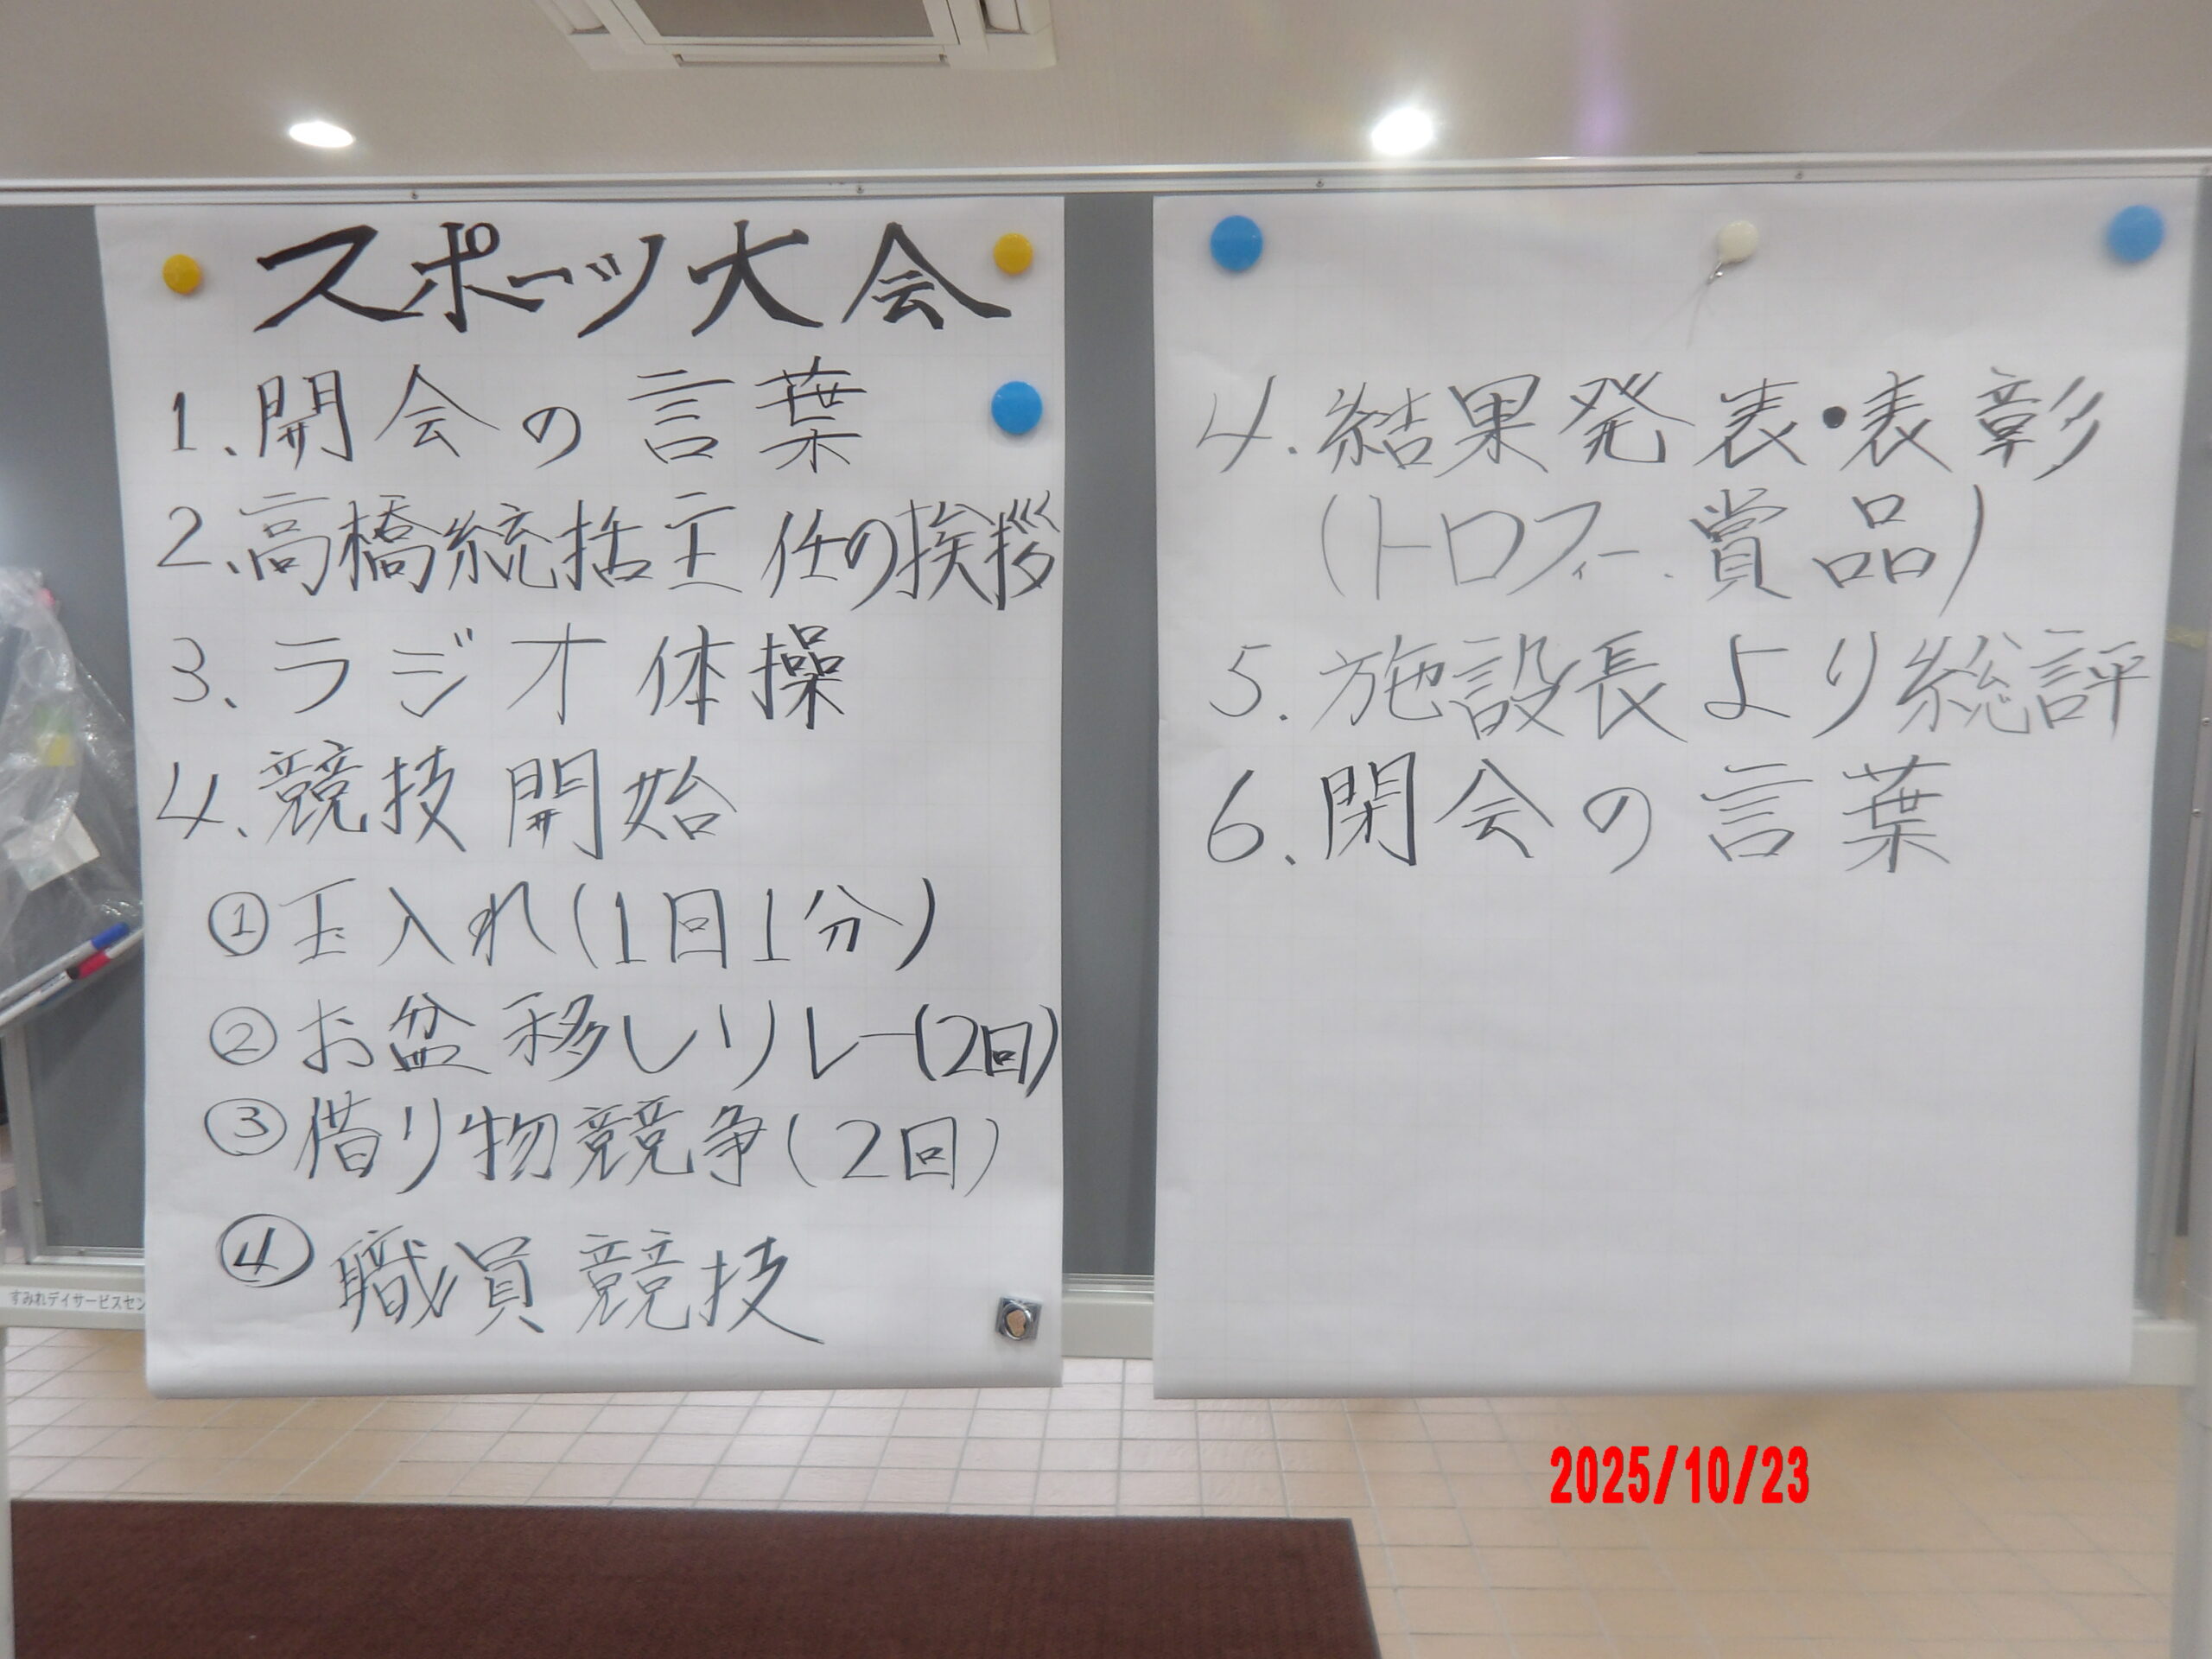 スポーツ大会
1、開会の言葉
2、高橋統括主任の挨拶
3、ラジオ体操
4、競技開始
①玉入れ(1回1分)
②お盆移しリレー(2回)
③借り物競争(2回)
④職員競技
すみれデイサービスセン
4.結果発表・表彰
(トロフィー.賞品)
5.施設長より総評
6、閉会の言葉
2025/10/23